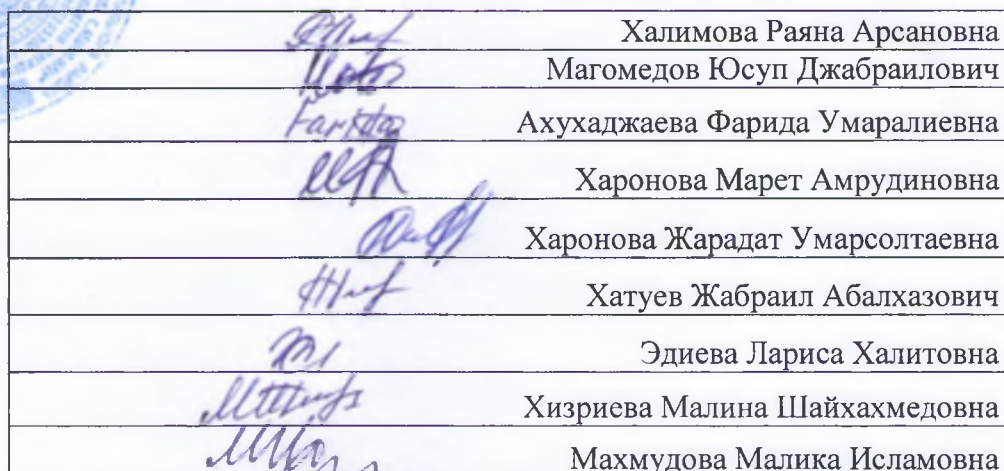 Халимова Раяна Арсановна
Магомедов Юсуп Джабраилович
Farida Ахухаджаева Фарида Умаралиевна
Харонова Марет Амрудиновна
Харонова Жарадат Умарсолтаевна
Хатуев Жабраил Абалхазович
Эдиева Лариса Халитовна
Хизриева Малина Шайхахмедовна
Махмудова Малика Исламовна